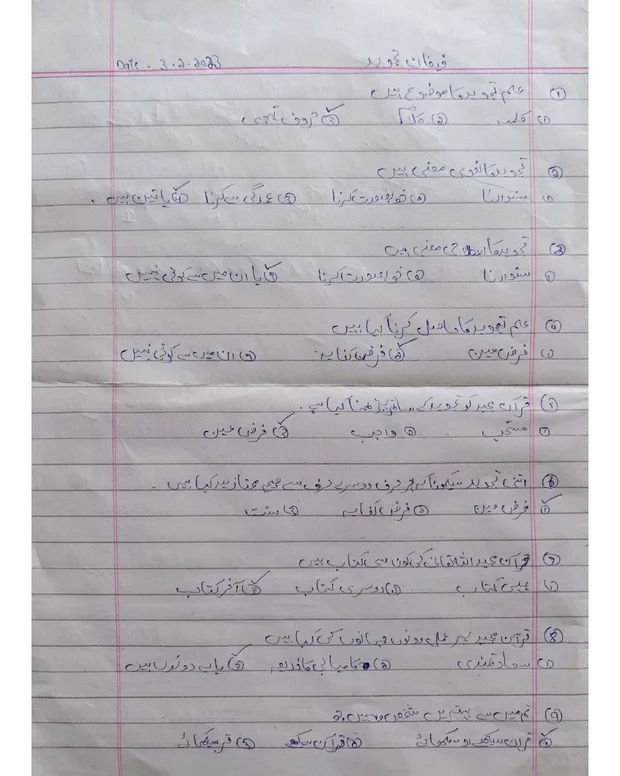 فیضان تجوید Date. 3.2.2023
① علم تجوید کا موضوع ہیں
① کلمہ ② کلام ③ حروف تہجی
② تجوید کا لغوی معنی ہیں
① سنوارنا ② خوبصورت کرنا ③ عمدگی سے کرنا ④ یا تین ہیں.
③ تجوید کا اصطلاحی معنی ہیں
① سنوارنا ② خوبصورت کرنا ③ یا ان میں سے کوئی نہیں
④ علم تجوید کا حاصل کرنا کیا ہیں
① فرض عین ② فرض کفایہ ③ ان میں سے کوئی نہیں
⑤ قرآن مجید کو تجوید کے پڑھنا کیا ہے.
① مستحب ② واجب ③ فرض عین
⑥ اتنی تجوید سیکھنا کہ ہر حرف دوسرے حرف سے صحیح ممتاز ہو کیا ہیں.
① فرض عین ② فرض کفایہ ③ سنت
⑦ قرآن مجید اللہ تعالی کی کون سی کتاب ہیں
① پہلی کتاب ② دوسری کتاب ③ آخر کتاب
⑧ قرآن مجید پر عمل دونوں جہانوں کی کیا ہیں
① سعادتمندی ② کامیابی کا ذریعہ ③ یا یہ دونوں ہیں
⑨ تم میں سے بہترین شخص وہ ہیں جو
① قرآن سیکھے و سکھائے ② قرآن سیکھے ③ قر سکھائے